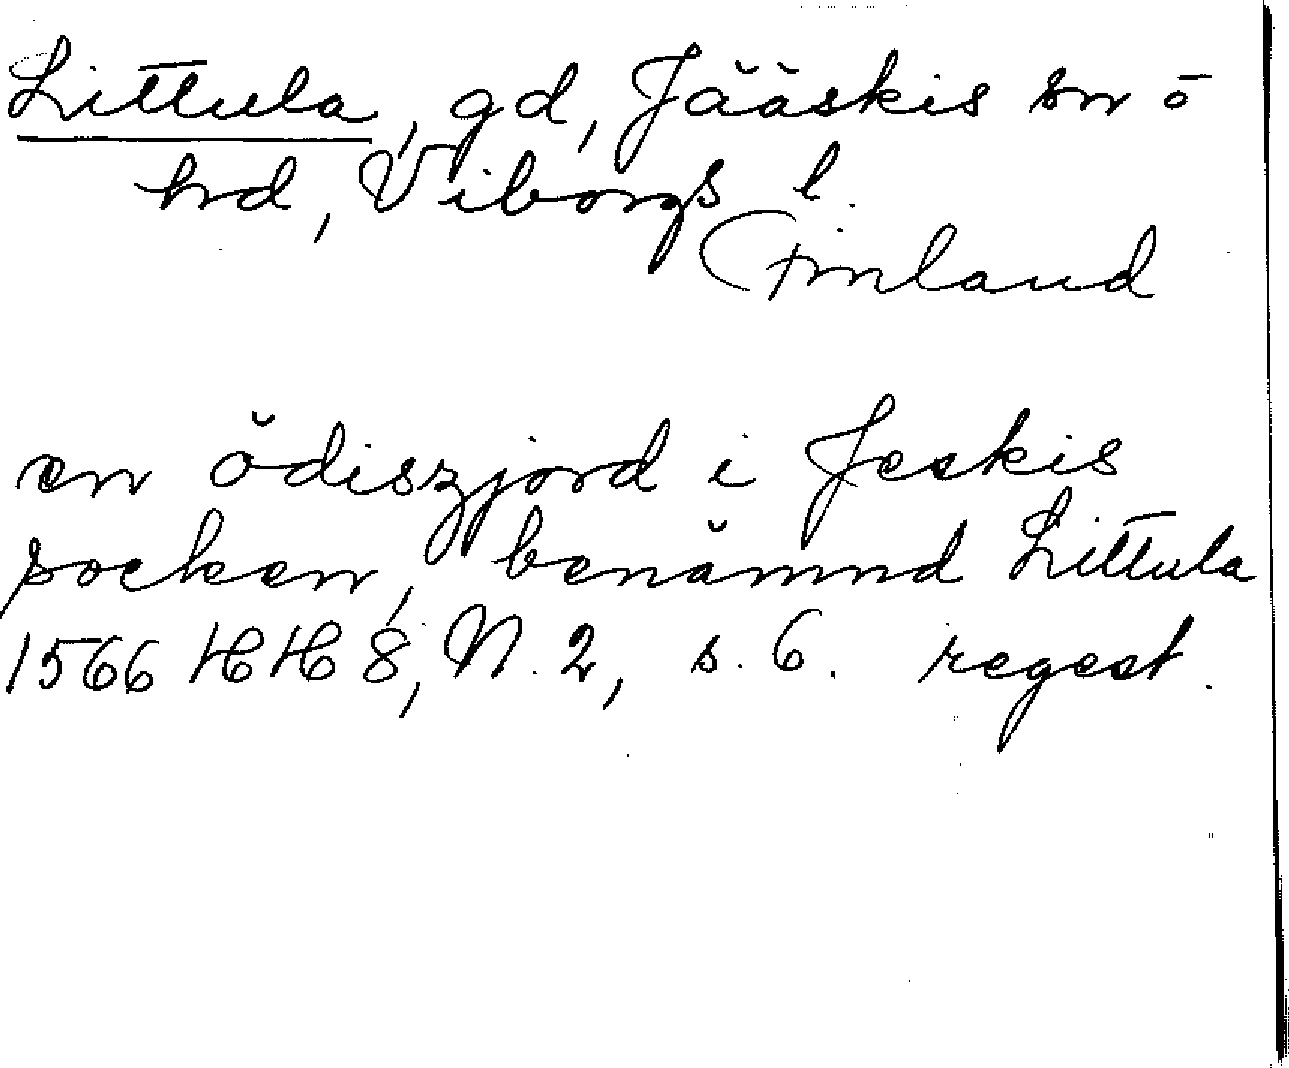 Littula, gd, Jääskis sn ö
hd, Viborgs l.
Finland
en ödiszjord i Jeskis
socken, benämnd Littula
1566 HH 8, N. 2, s. 6. regest.